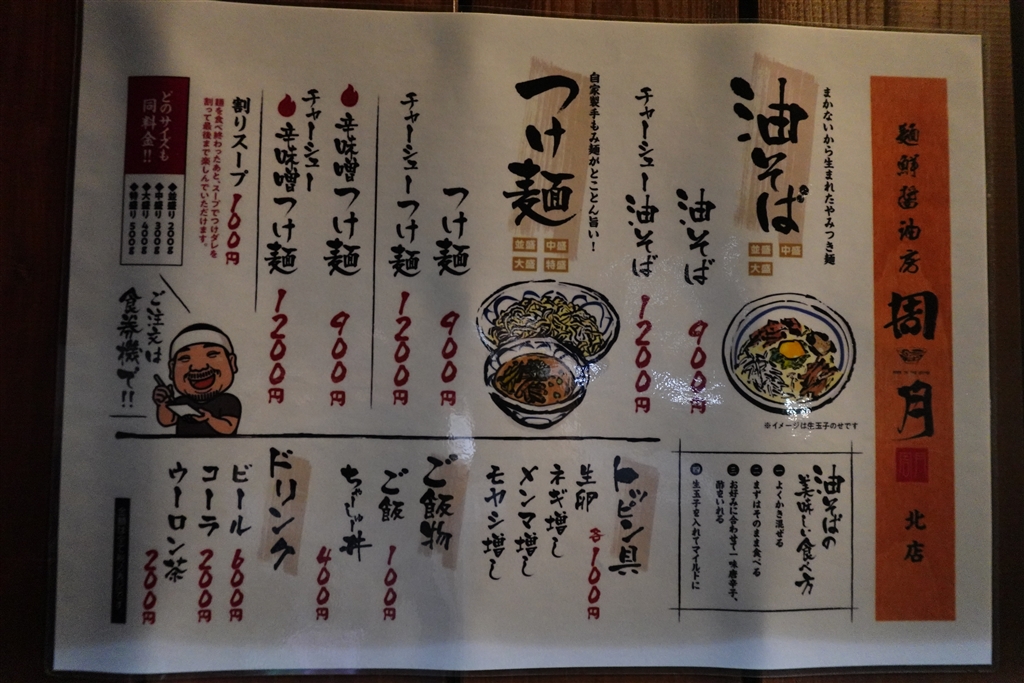 麺鮮醤油房
周月
北店
まかないから生まれたやみつき麺
油そば
並盛 中盛
大盛
油そば 900円
チャーシュー油そば 1200円
※イメージは生玉子のせです
自家製手もみ麺がとことん旨い!
つけ麺
並盛 中盛
大盛 特盛
つけ麺 900円
チャーシューつけ麺 1200円
辛味噌つけ麺 900円
チャーシュー
辛味噌つけ麺 1200円
割りスープ 100円
麺を食べ終わったあと、スープでつけダレを
割って最後まで楽しんでいただけます。
どのサイズも
同料金!!
◆並盛り 200g
◆中盛り 300g
◆大盛り 400g
◆特盛り 500g
ご注文は
食券機で!!
油そばの
美味しい食べ方
一 よくかき混ぜる
二 まずはそのまま食べる
三 お好みに合わせて一味唐辛子、
酢をいれる
四 生玉子を入れてマイルドに
トッピン具
生卵 各100円
ネギ増し
メンマ増し
モヤシ増し
ご飯物
ご飯 100円
ちゃーじゅー丼 400円
ドリンク
ビール 600円
コーラ 200円
ウーロン茶 200円